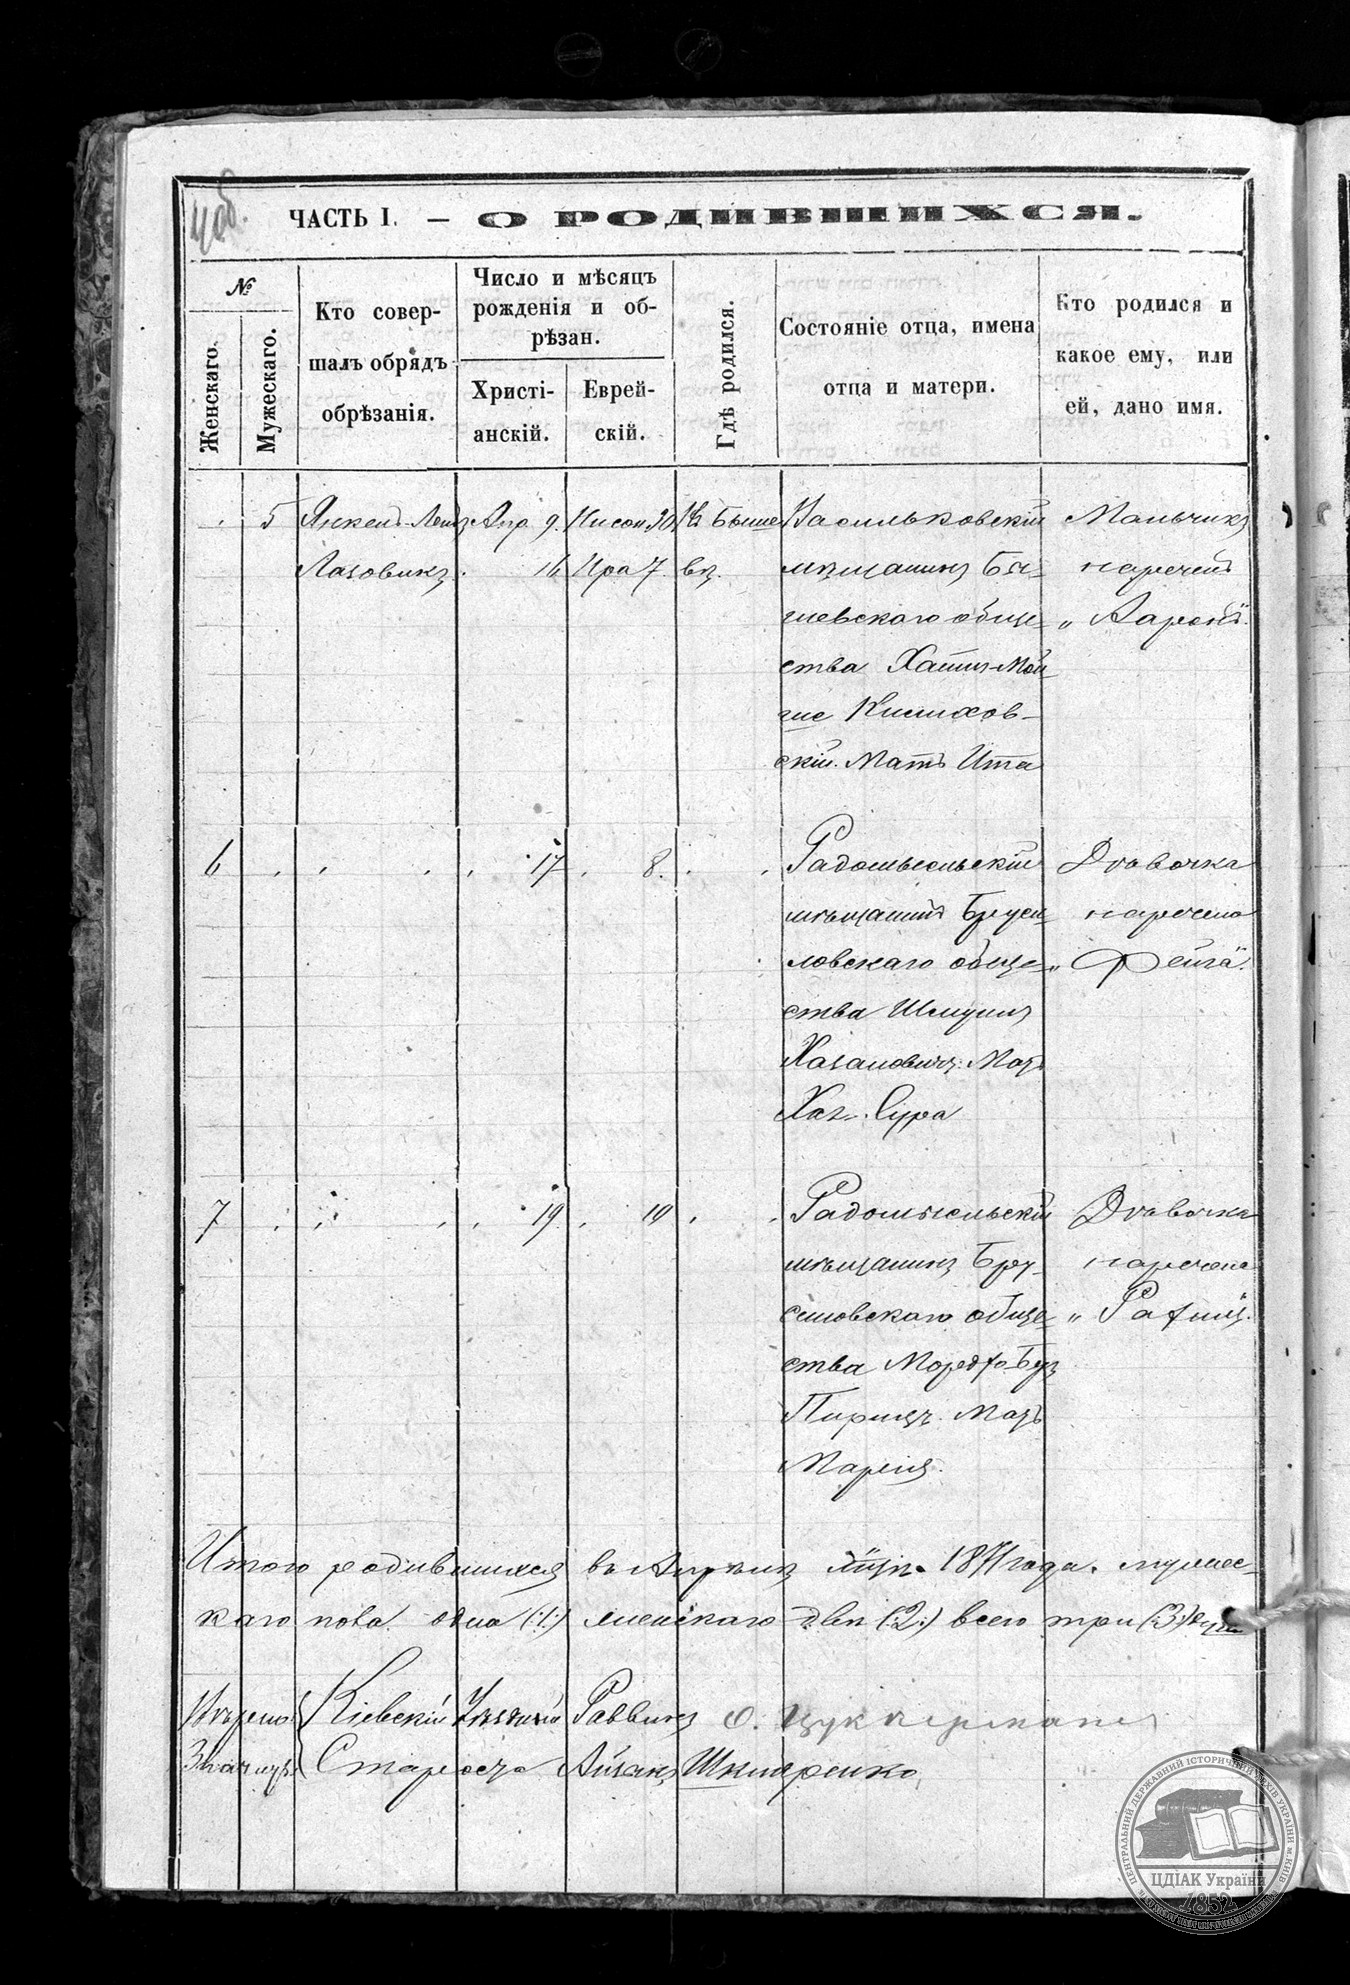 4об.
ЧАСТЬ I. — О РОДИВШИХСЯ.
№
Женскаго.
Мужескаго.
Кто совер-
шалъ обрядъ
обрѣзанія.
Число и мѣсяцъ
рожденія и об-
рѣзан.
Христі-
анскій.
Еврей-
скій.
Гдѣ родился.
Состояніе отца, имена
отца и матери.
Кто родился и
какое ему, или
ей, дано имя.
5 Янкель Апр 9. Нисон 30 Въ Быше
16 Ира 7. въ.
Васильковскій
мѣщанинъ Бы-
шевскаго обще-
ства Хаимъ-Мой
ше
скій. Мать Ита
Мальчикъ
нареченъ
„ Ааронъ“.
6 17 8.
Радомысльскій
мѣщанинъ Бруси-
ловскаго обще-
ства Шмуль
Хазановичъ. Мать
Хая-Сура
Дѣвочка
наречена
„ Фейга“.
7 19 10
Радомысльскій
мѣщанинъ Бру-
силовскаго обще-
ства Мордко-Беръ
Мать
Дѣвочка
наречена
„
Итого родившихся въ Апрѣлѣ мцѣ 1871 года. мужес-
каго пола одна (:1:) женскаго двѣ (:2:) всего три (:3:) души
Кіевскій Уѣздный Раввинъ О. Цукерманъ
Староста Айзикъ Шкляренко
ЦЕНТРАЛЬНИЙ ДЕРЖАВНИЙ ІСТОРИЧНИЙ АРХІВ УКРАЇНИ м. КИЇВ
ЦДІАК України
1852